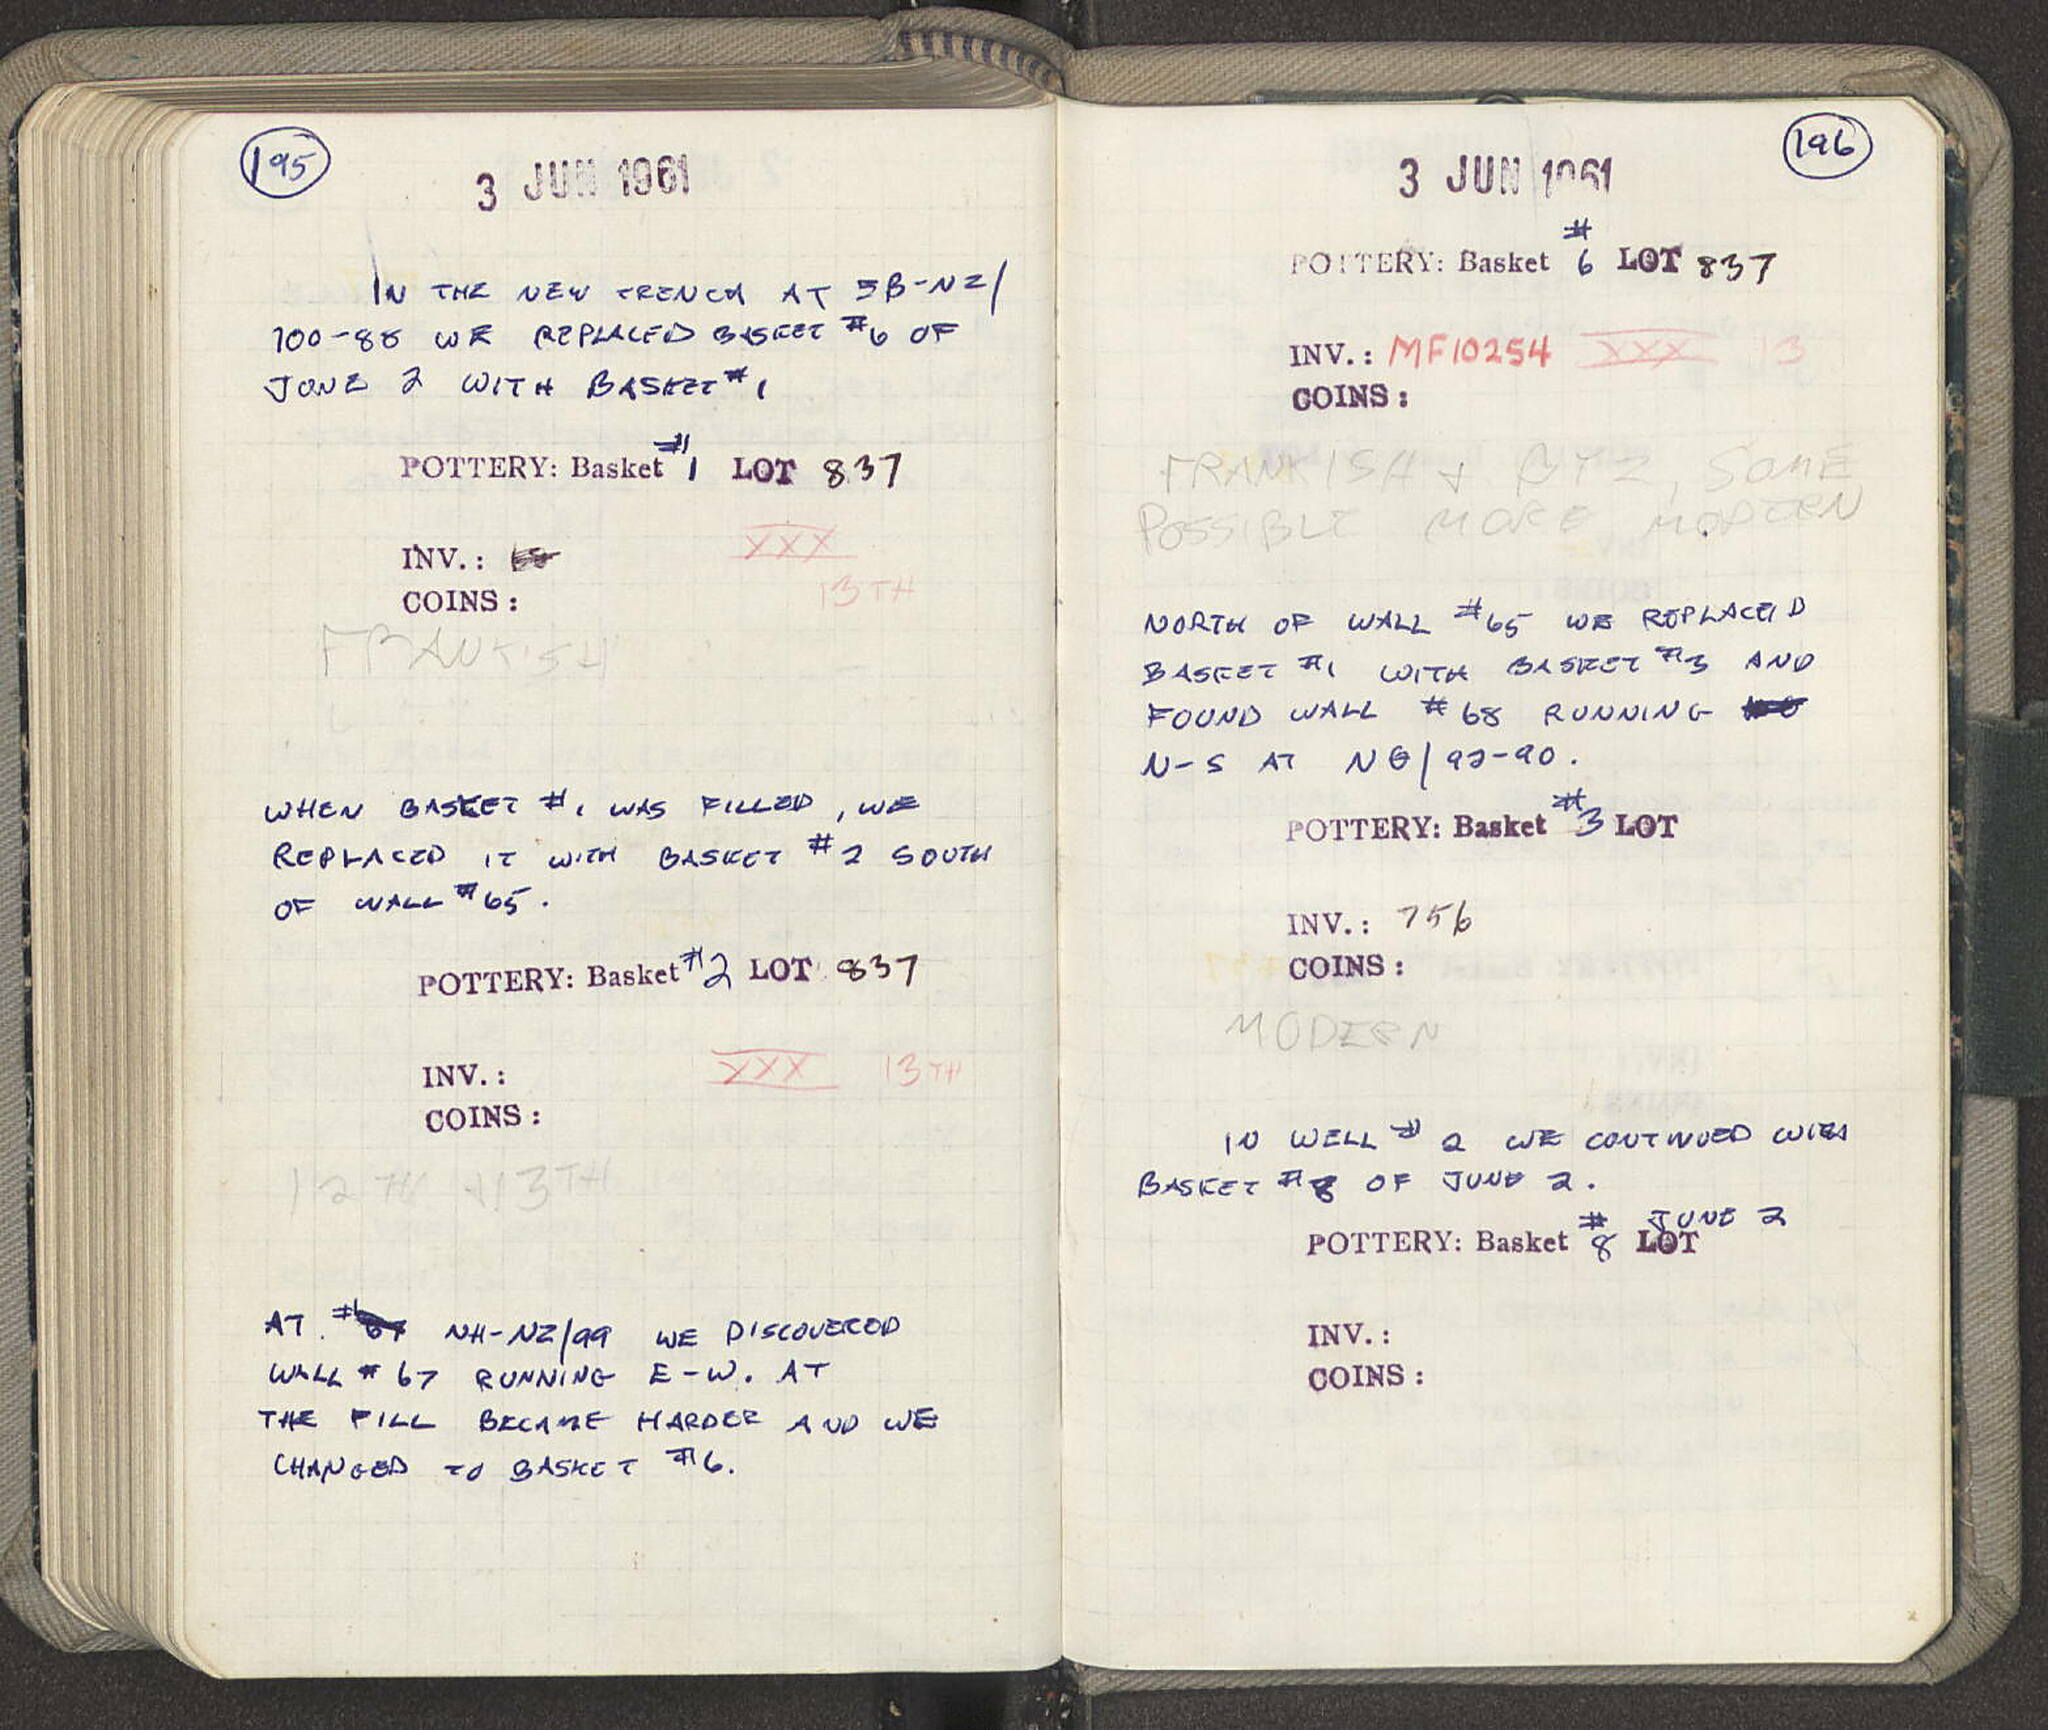 195
3 JUN 1961
IN THE NEW TRENCH AT SB-NZ/
100-88 WE REPLACED BASKET #6 OF
JUNE 2 WITH BASKET #1
POTTERY: Basket #1 LOT 837
INV.: XXX
13TH
COINS:
FRANKISH
WHEN BASKET #1 WAS FILLED, WE
REPLACED IT WITH BASKET #2 SOUTH
OF WALL #65.
POTTERY: Basket #2 LOT 837
INV.: XXX 13TH
COINS:
12TH + 13TH
AT NH-NZ/99 WE DISCOVERED
WALL #67 RUNNING E-W. AT
THE FILL BECAME HARDER AND WE
CHANGED TO BASKET #6.
196
3 JUN 1961
POTTERY: Basket #6 LOT 837
INV.: MF10254 XXX 13
COINS:
FRANKISH + BYZ, SOME
POSSIBLE MORE MODERN
NORTH OF WALL #65 WE REPLACED
BASKET #1 WITH BASKET #3 AND
FOUND WALL #68 RUNNING
N-S AT NG/92-90.
POTTERY: Basket #3 LOT
INV.: 756
COINS:
MODERN
IN WELL #2 WE CONTINUED WITH
BASKET #8 OF JUNE 2.
JUNE 2
POTTERY: Basket #8 LOT
INV.:
COINS: